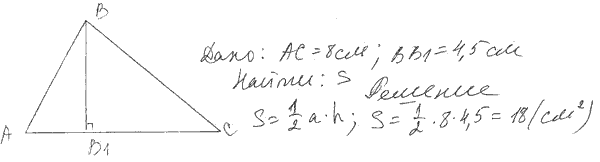 B
A
C
B1
Дано: AC = 8 см; BB1 = 4,5 см
Найти: S
Решение
S = 1/2 a · h; S = 1/2 · 8 · 4,5 = 18 (см²)